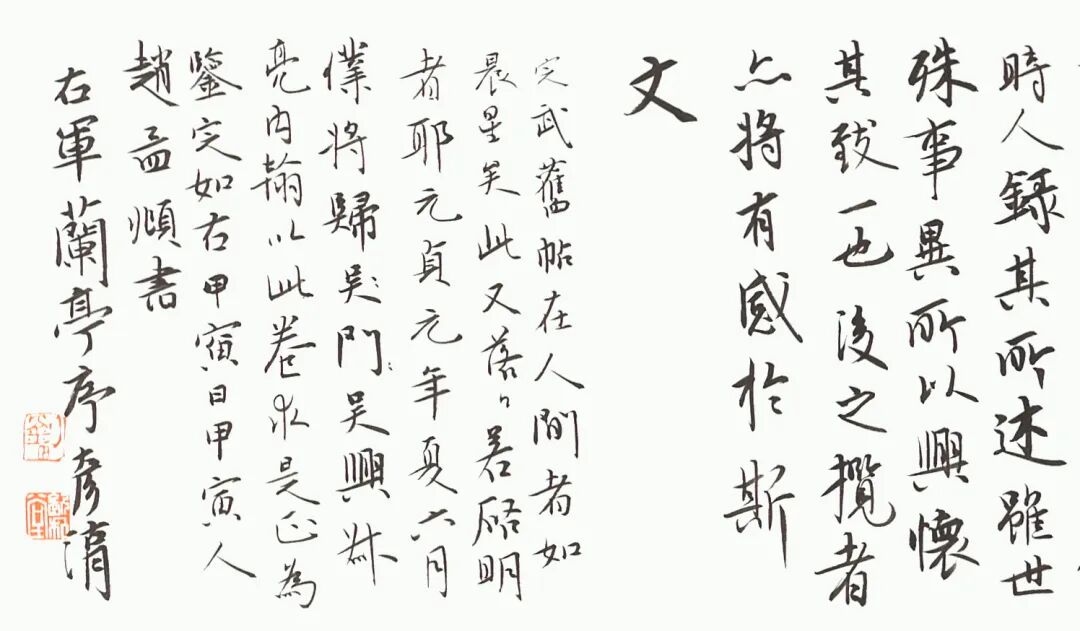 時人録其所述雖世
殊事異所以興懷
其致一也後之攬者
亦將有感於斯
文
定武舊帖在人間者如
晨星矣此又落々若啓明
者耶元貞元年夏六月
僕將歸吳門吳興叔
亮内翰以此卷求是正為
鑒定如右甲寅日甲寅人
趙孟頫書
右軍蘭亭序彦